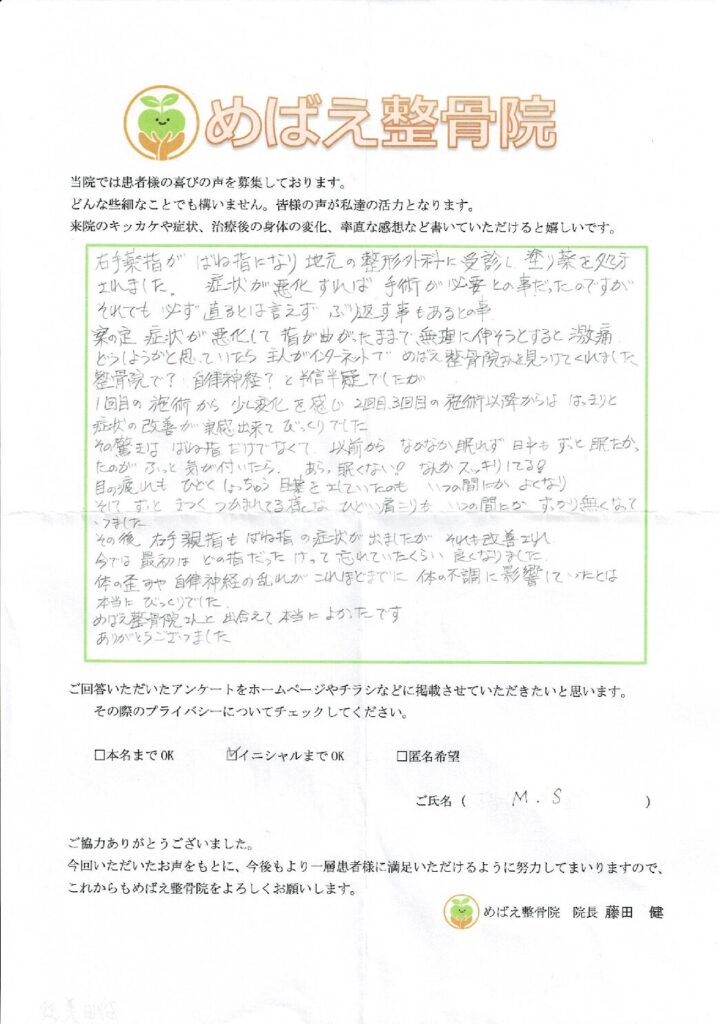 めばえ整骨院
当院では患者様の喜びの声を募集しております。
どんな些細なことでも構いません。皆様の声が私達の活力となります。
来院のキッカケや症状、治療後の身体の変化、率直な感想など書いていただけると嬉しいです。
右手薬指が ばね指になり 地元の整形外科に受診し 塗り薬を処方
されました。 症状が悪化すれば 手術が必要との事だったのですが
それでも 必ず直るとは言えず ぶり返す事もあるとの事
案の定 症状が悪化して 指が曲がったままで 無理に伸そうとすると 激痛
どうしようかと思っていたら 主人がインターネットで めばえ整骨院さんを見つけてくれました
整骨院で? 自律神経? と半信半疑でしたが
1回目の施術から 少し変化を感じ 2回目、3回目の施術以降からは はっきりと
症状の改善が実感出来て びっくりでした
その驚きは ばね指だけでなくて 以前から なかなか眠れず 日中も ずっと眠たかっ
たのが ふっと気が付いたら、 あら、眠くない!! なんかスッキリしてる!
目の疲れも ひどく しょっちゅう 目薬をさしていたのも いつの間にか よくなり
そして ずっと きつく つかまれてる様な ひどい肩こりも いつの間にか すっかり無くなって
いました
その後 右手親指も ばね指の症状が出ましたが それも改善され
今では 最初は どの指だったけって 忘れていたくらい 良くなりました。
体の歪みや 自律神経の乱れが これほどまでに 体の不調に影響していたとは
本当に びっくりでした。
めばえ整骨院さんと 出合えて 本当に よかったです
ありがとうございました
ご回答いただいたアンケートをホームページやチラシなどに掲載させていただきたいと思います。
その際のプライバシーについてチェックしてください。
□本名までOK ☑イニシャルまでOK □匿名希望
ご氏名 ( M.S )
ご協力ありがとうございました。
今回いただいたお声をもとに、今後もより一層患者様に満足いただけるように努力してまいりますので、
これからもめばえ整骨院をよろしくお願いします。
めばえ整骨院 院長 藤田 健